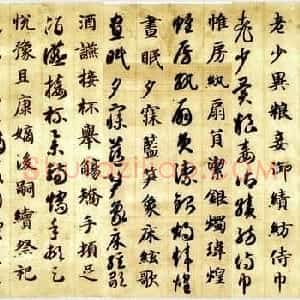 老少異粮妾御績紡侍巾
老少異粮妾御績紡侍巾
帷房紈扇員潔銀燭煒煌
帷房紈扇員潔銀燭煒煌
晝眠夕寐藍笋象床絃歌
晝眠夕寐藍笋象床絃歌
酒讌接杯舉觴矯手頓足
酒讌接杯舉觴矯手頓足
悅豫且康嫡後嗣續祭祀